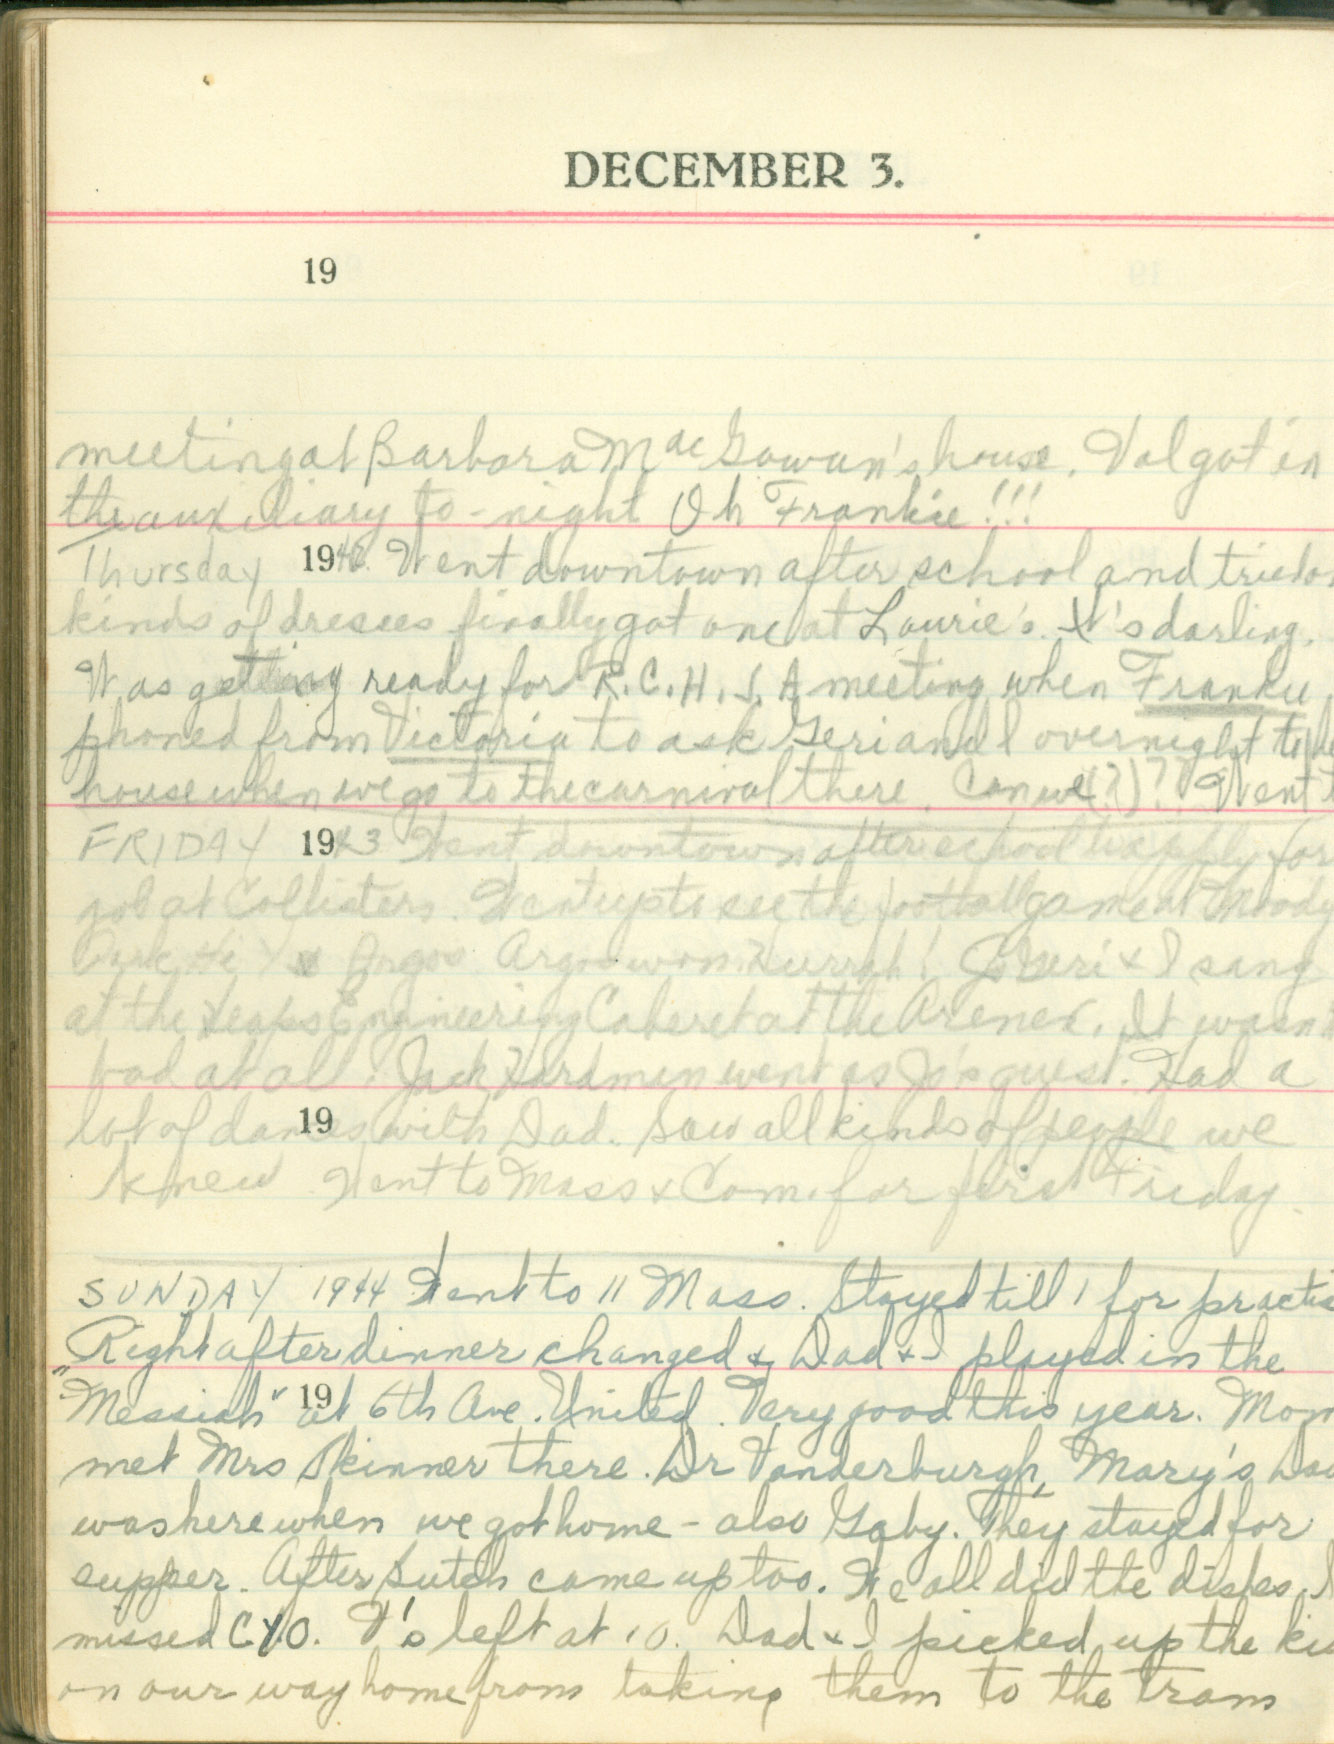 DECEMBER 3.
19
meeting at Barbara MacGowan's house. Val got in
the auxiliary to-night Oh Frankie!!!
Thursday 1942. Went downtown after school and tried on
kinds of dresses finally got one at Laurie's. It's darling.
Was getting ready for R.C.H.S.A meeting when Frankie
phoned from Victoria to ask Geri and I overnight to
house when we go to the carnival there. Can we (?)? Went
FRIDAY 1943 Went downtown after school to apply for
job at Collisters. Went up to see the football game at Moody
Park Hi Y Argos. Argos won Hurrah! Jo Geri & I sang
at the Heaps Engineering Caberet at the Arena. It wasn't
bad at all. Jack Hardman went as Jo's guest. Had a
19
lot of dances with Dad. Saw all kinds of people we
knew Went to Mass & Com. for first Friday.
SUNDAY 1944 Went to 11 Mass. Stayed till 1 for practis
Right after dinner changed & Dad & I played in the
"Messiah" 19 at 6th Ave. United. Very good this year. Mom
met Mrs Skinner there. Dr Vanderburgh, Mary's Dad
was here when we got home - also Gaby. They stayed for
supper. After Dutch came up too. We all did the dishes. I
missed CYO. V's left at 10. Dad & I picked up the
on our way home from taking them to the tram